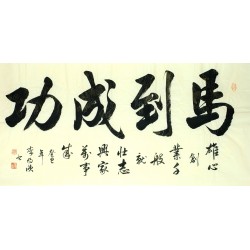 馬到成功
雄心
創
業千
般
就
壯志
興家
萬事
癸巳
年
李